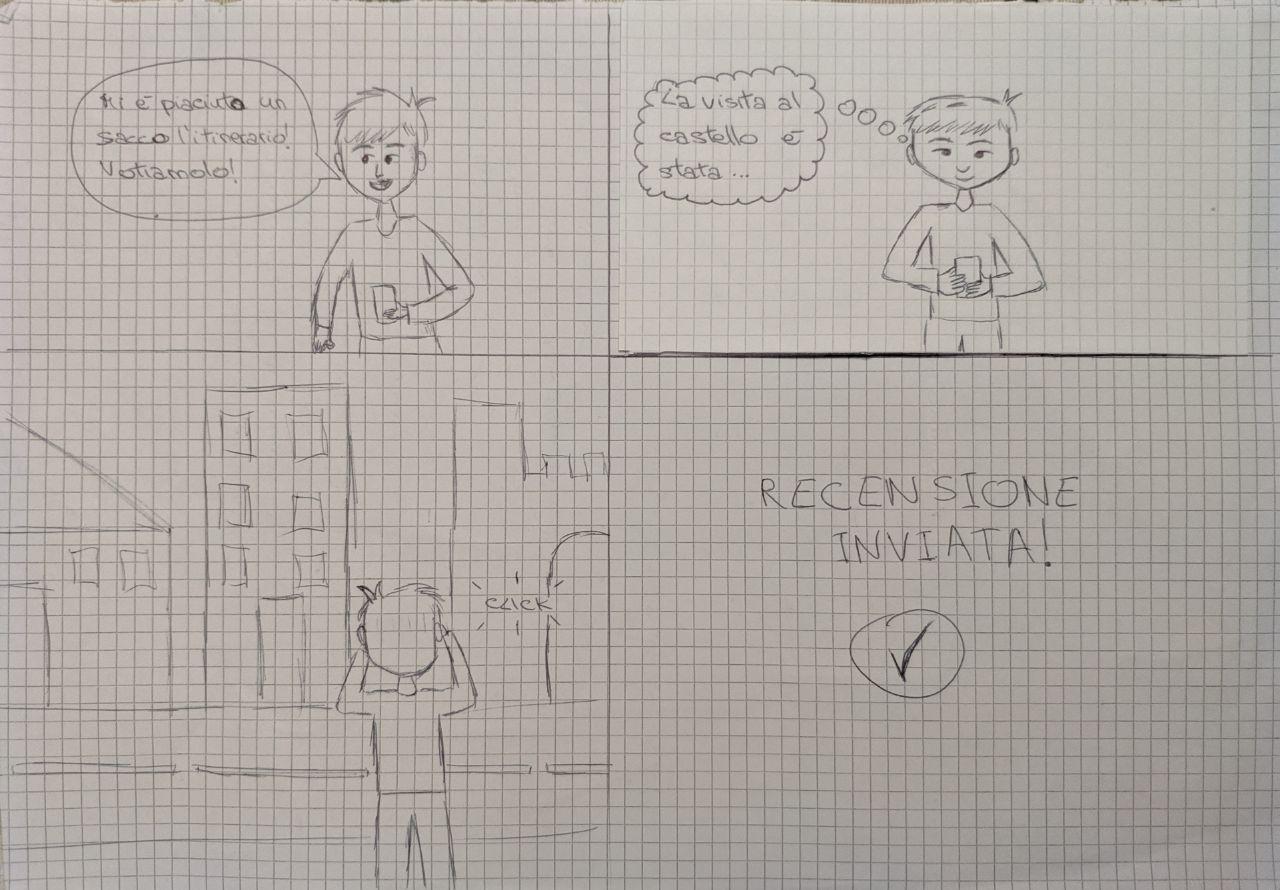 Mi è piaciuto un
sacco l'itinerario!
Votiamolo!
La visita al
castello è
stata ...
CLICK
RECENSIONE
INVIATA!